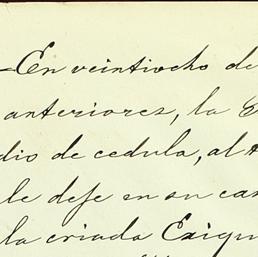 En veintiocho de
anteriores, la
dio de cedula, al
le deje en su cas
la criada Exiqu